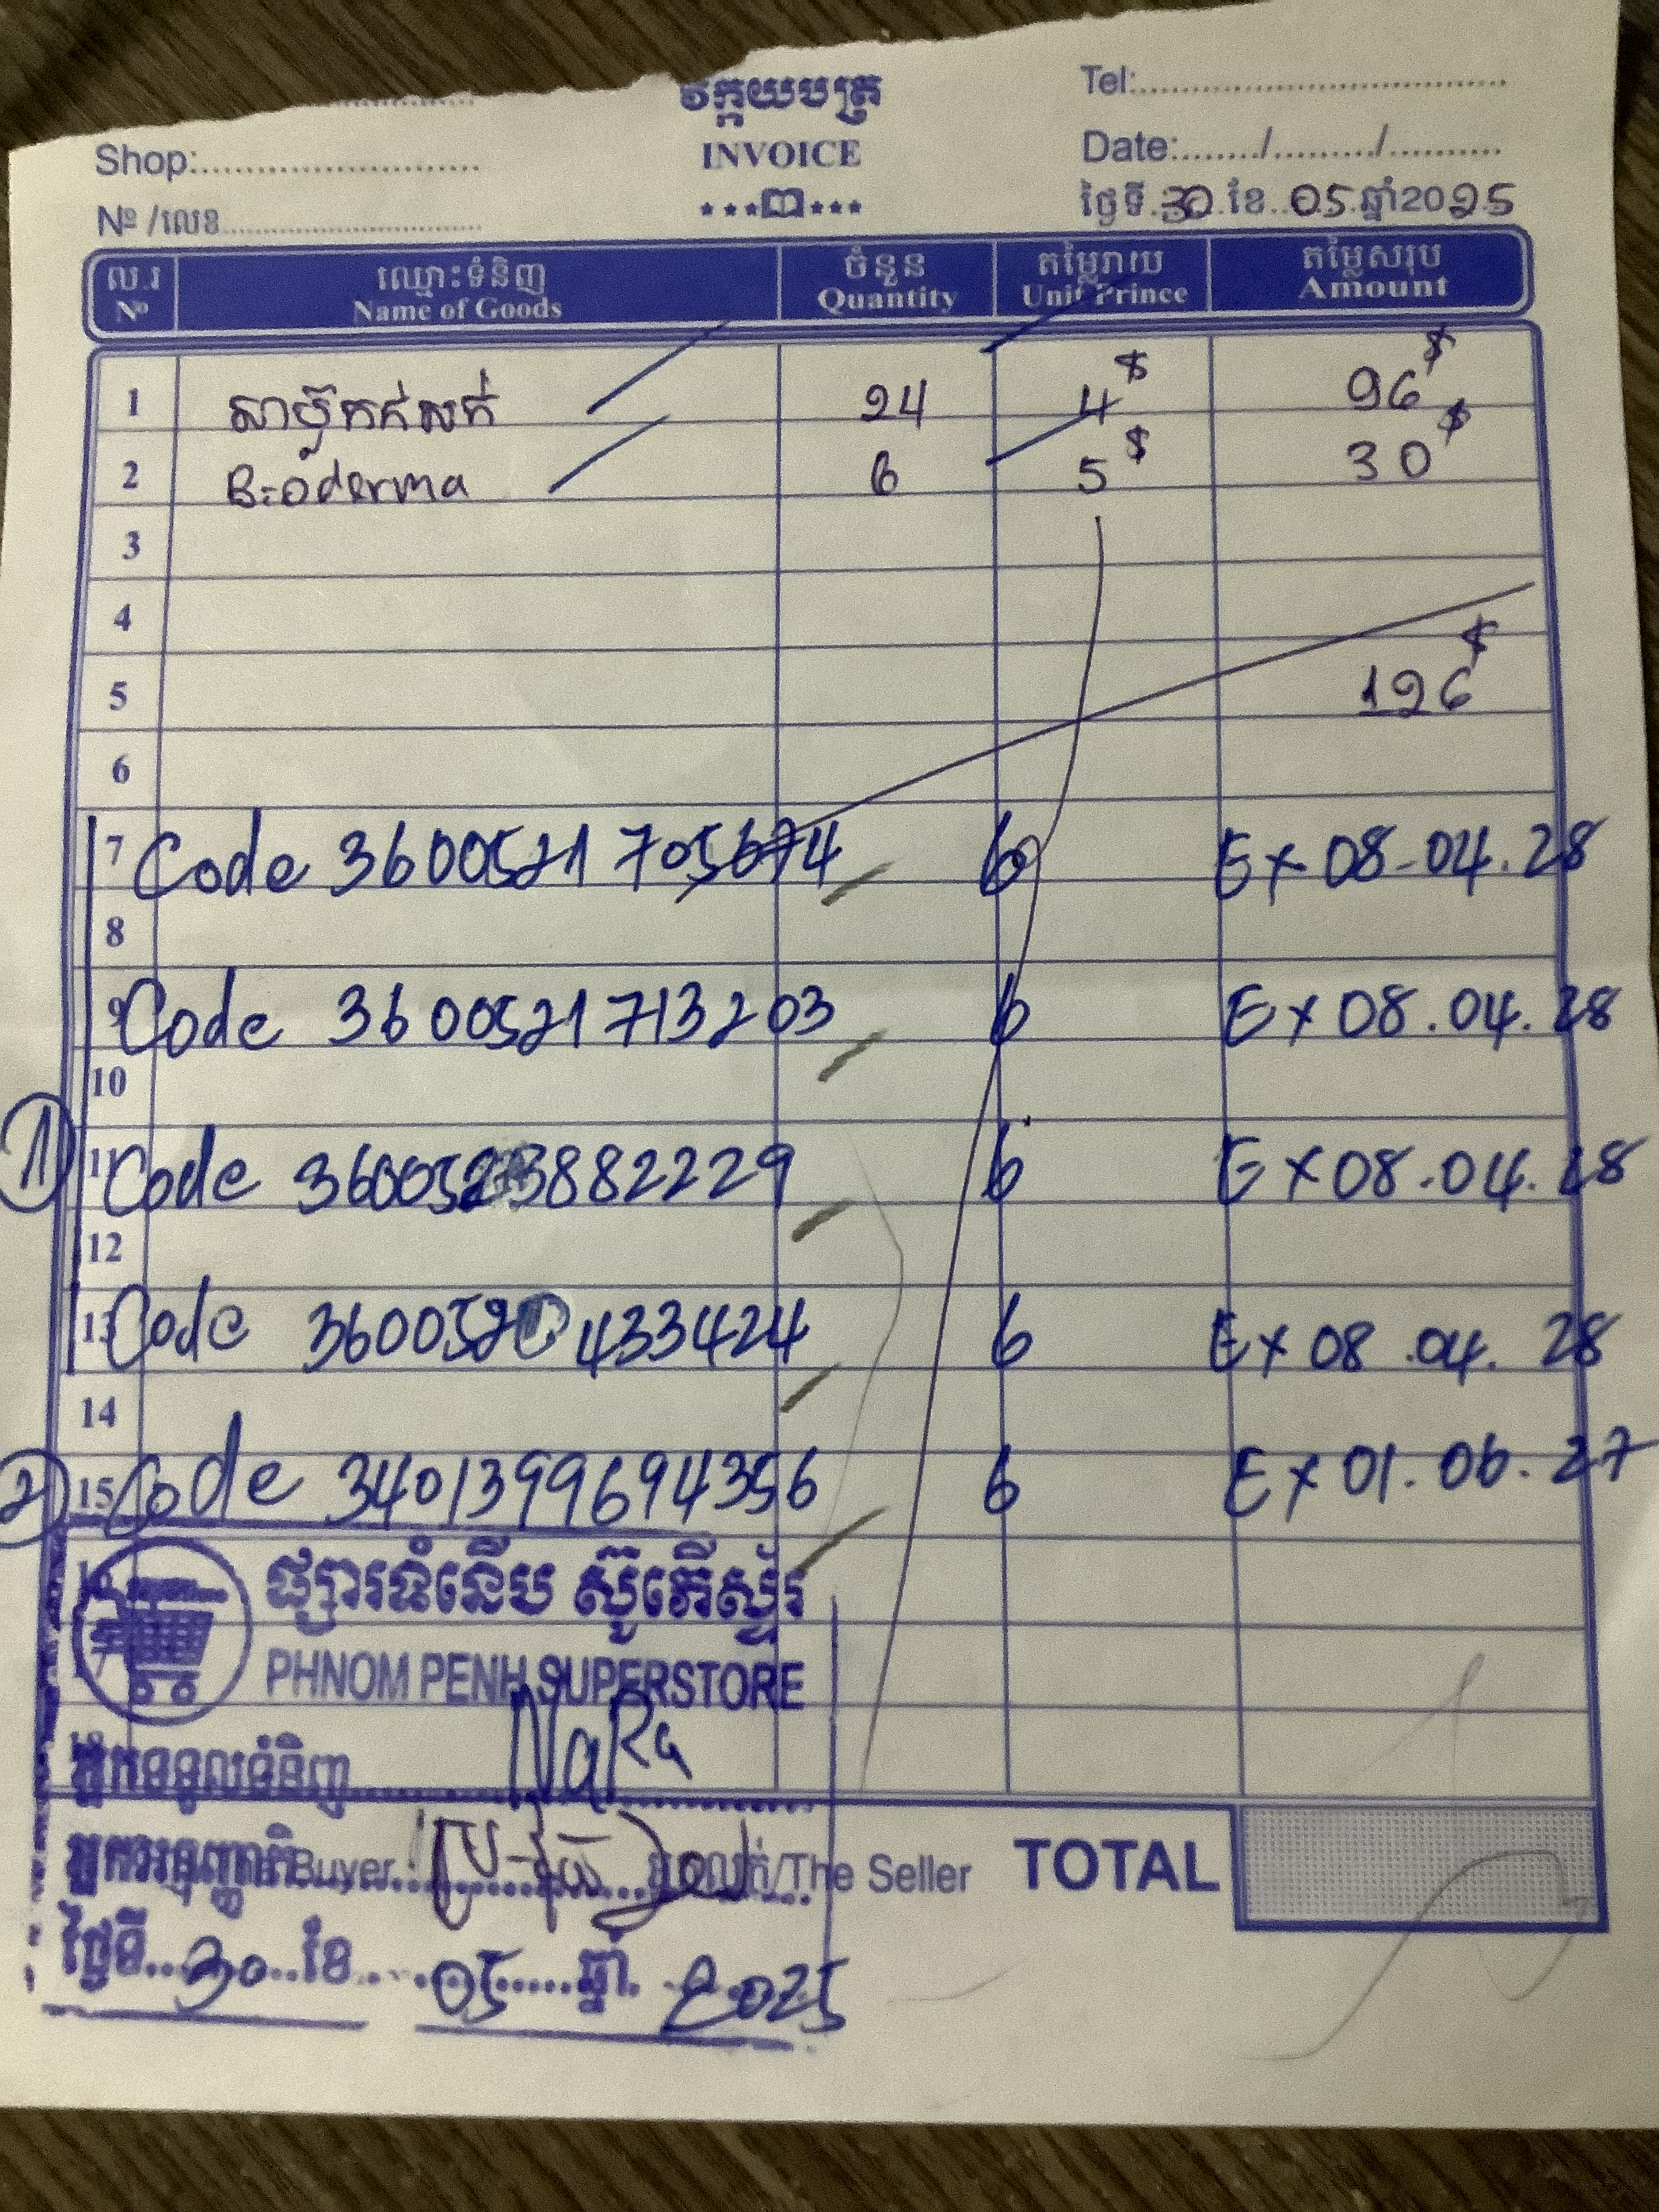 វិក្កយបត្រ
Tel:
Shop: INVOICE Date:....../........./..........
Nº /លេខ ថ្ងៃទី 30 ខែ 05 ឆ្នាំ2025
ល.រ ឈ្មោះទំនិញ ចំនួន តម្លៃរាយ តម្លៃសរុប
Nº Name of Goods Quantity Unit Prince Amount
1 សាប៊ូកក់សក់ 24 4$ 96$
2 Bioderma 6 5$ 30$
3
4
5 126$
6
7 Code 3600521705674 6 Ex 08-04.28
8
9 Code 3600521713203 6 Ex 08.04.28
10
1 11 Code 3600523882229 6 Ex 08.04.28
12
13 Code 3600520433424 6 Ex 08.04.28
14
2 15 Code 3401399694356 6 Ex 01.06.27
ផ្សារទំនើប ស៊ូភើស្ទ័រ
PHNOM PENH SUPERSTORE
អ្នកទទួលទំនិញ NaRa
Buyer /The Seller TOTAL
ថ្ងៃទី 30 ខែ 05 ឆ្នាំ 2025